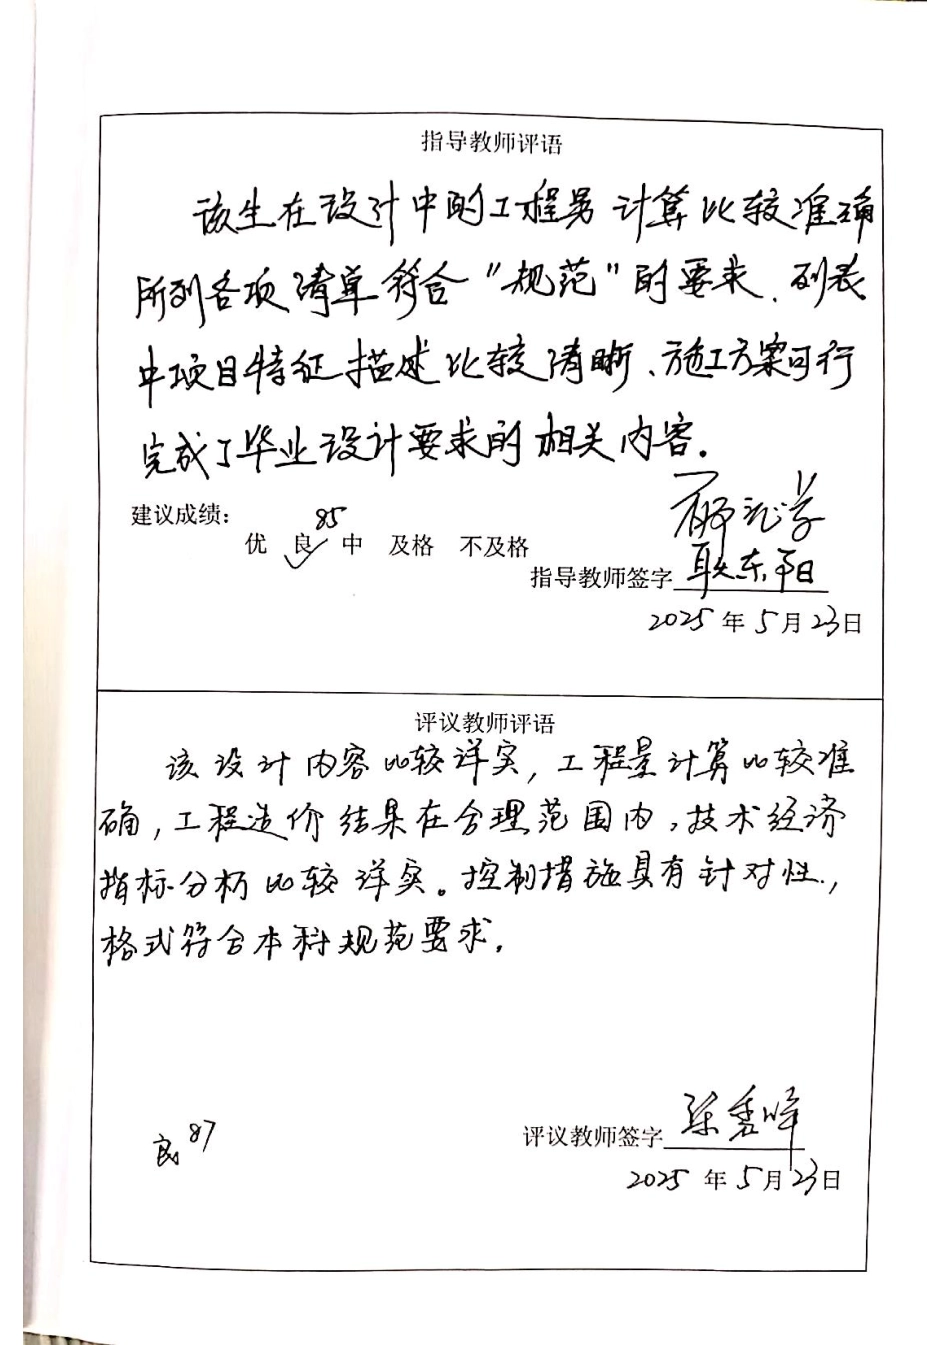 指导教师评语
该生在设计中的工程量计算比较准确
所列各项清单符合“规范”的要求、列表
中项目特征描述比较清晰、施工方案可行
完成了毕业设计要求的相关内容。
建议成绩:
85
优 良 中 及格 不及格
指导教师签字 耿东阳
2025年5月23日
评议教师评语
该设计内容比较详实,工程量计算比较准
确,工程造价结果在合理范围内,技术经济
指标分析比较详实。控制措施具有针对性,
格式符合本科规范要求。
良 87
评议教师签字
2025年5月23日